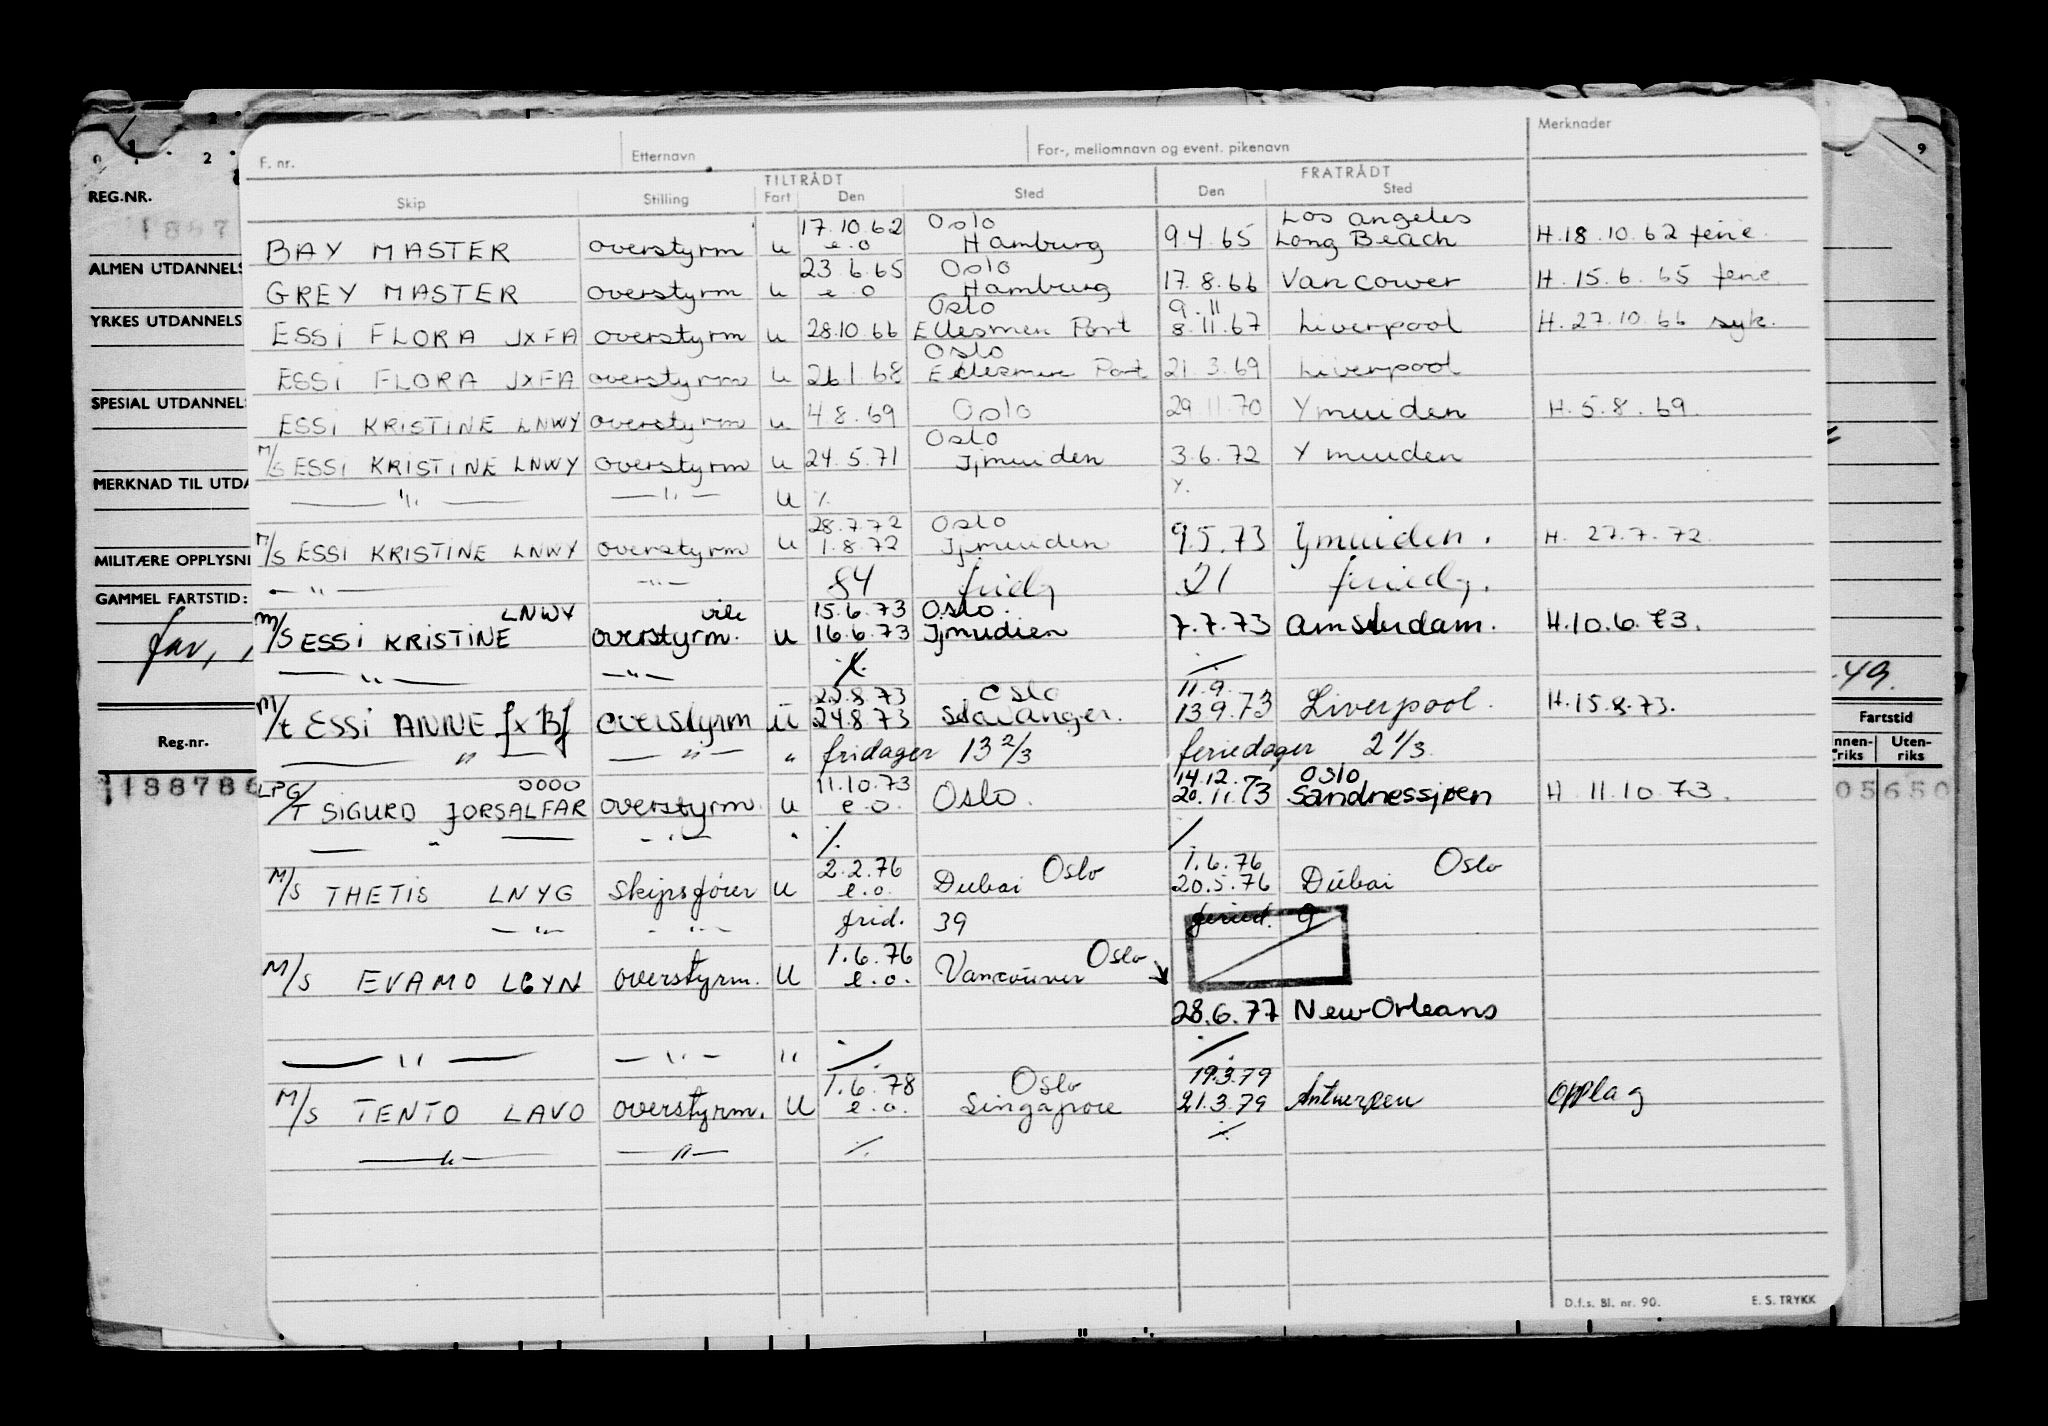 F. nr. Etternavn For-, mellomnavn og event. pikenavn Merknader
TILTRÅDT FRATRÅDT
Skip Stilling Fart Den Sted Den Sted
17.10.62 Oslo Los Angeles
BAY MASTER overstyrm u e.o Hamburg 9.4.65 Long Beach H.18.10.62 ferie.
23.6.65 Oslo
GREY MASTER overstyrm u e.o Hamburg 17.8.66 Vancower H.15.6.65 ferie.
Oslo 9.11
ESSI FLORA JXFA overstyrm u 28.10.66 Ellesmen Port 8.11.67 Liverpool H.27.10.66 syk.
Oslo
ESSI FLORA JXFA overstyrm u 26.1.68 Ellesmere Port 21.3.69 Liverpool
ESSI KRISTINE LNWY overstyrm u 4.8.69 Oslo 29.11.70 Ymuiden H.5.8.69.
Oslo
M/S ESSI KRISTINE LNWY overstyrm u 24.5.71 Ijmuiden 3.6.72 Ymuiden
— " — — " — u ٪ ٪
28.7.72 Oslo
M/S ESSI KRISTINE LNWY overstyrm u 1.8.72 Ijmuiden 9.5.73 Ijmuiden. H. 27.7.72.
— " — — " — 84 fridg 21 feriedg.
LNWY vik 15.6.73 Oslo.
M/S ESSI KRISTINE overstyrm. u 16.6.73 Ijmudien 7.7.73 Amsterdam. H.10.6.73.
— " — — " — ٪ ٪
22.8.73 Oslo 11.9.
M/t ESSI ANNE JXBJ overstyrm u 24.8.73 Stavanger. 13.9.73 Liverpool. H.15.8.73.
— " — — " — " fridager 13 2/3 feriedager 2 1/3.
LPG OOOO 11.10.73 14.12. Oslo
/T SIGURD JORSALFAR overstyrm. u e.o. Oslo. 20.11.73 Sandnessjøen H 11.10.73.
— " — — " — " ٪ ٪
2.2.76 Oslo 1.6.76 Oslo
M/S THETIS LNYG Skipsfører u e.o. Dubai 20.5.76 Dubai
— " — — " — frid. 39 feried. 9
1.6.76 Oslo
M/S EVAMO LCYN overstyrm. U e.o. Vancouver
28.6.77 New Orleans
— " — — " — " ٪ ٪
1.6.78 Oslo 19.3.79
M/S TENTO LAVO overstyrm. U e.o. Singapore 21.3.79 Antwerpen Opplag
٪
— " — — " — ٪
D.f.s. Bl. nr. 90. E. S. TRYKK
0 1 2 9
REG.NR.
1887
ALMEN UTDANNELS
YRKES UTDANNELS
SPESIAL UTDANNEL
MERKNAD TIL UTDA
MILITÆRE OPPLYSNI
GAMMEL FARTSTID:
far,
49.
Fartstid
Reg.nr. nnen-riks Uten-riks
188786 05650